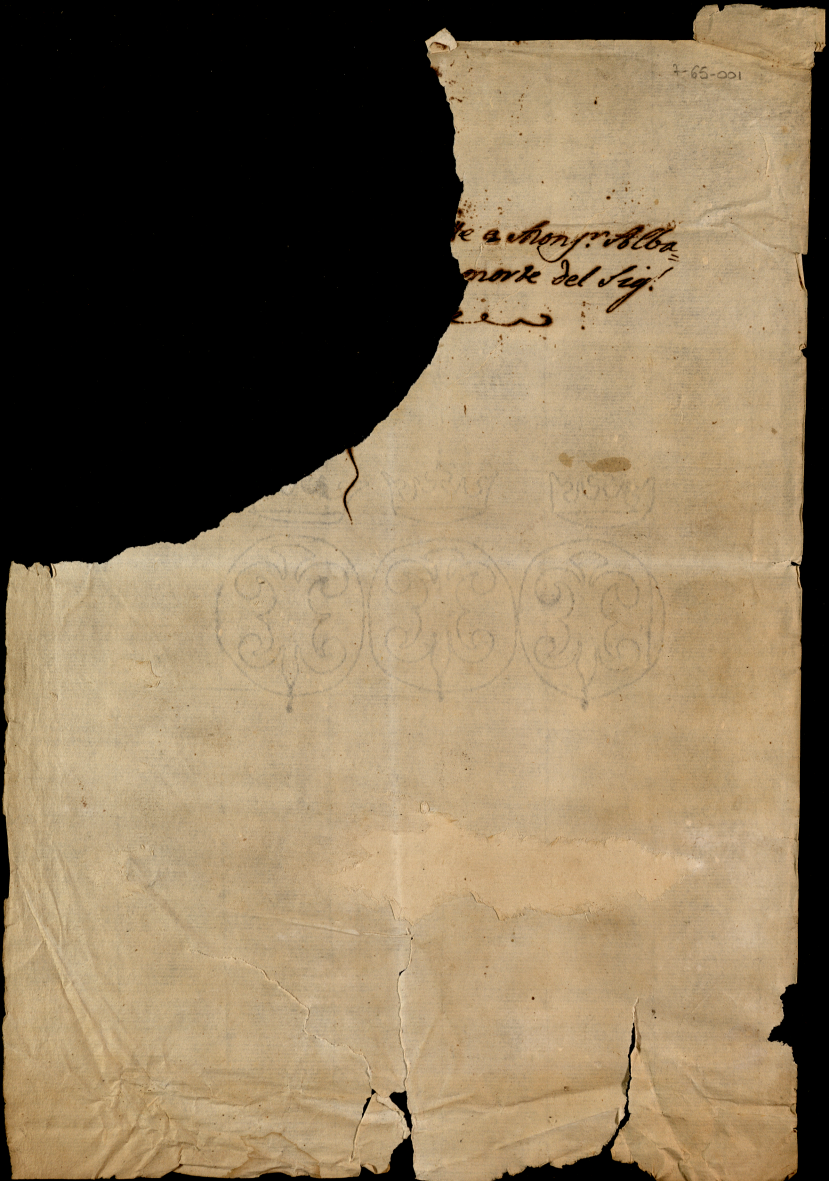 7-65-001
te a Mons.r Alba=
morte del Sig.r